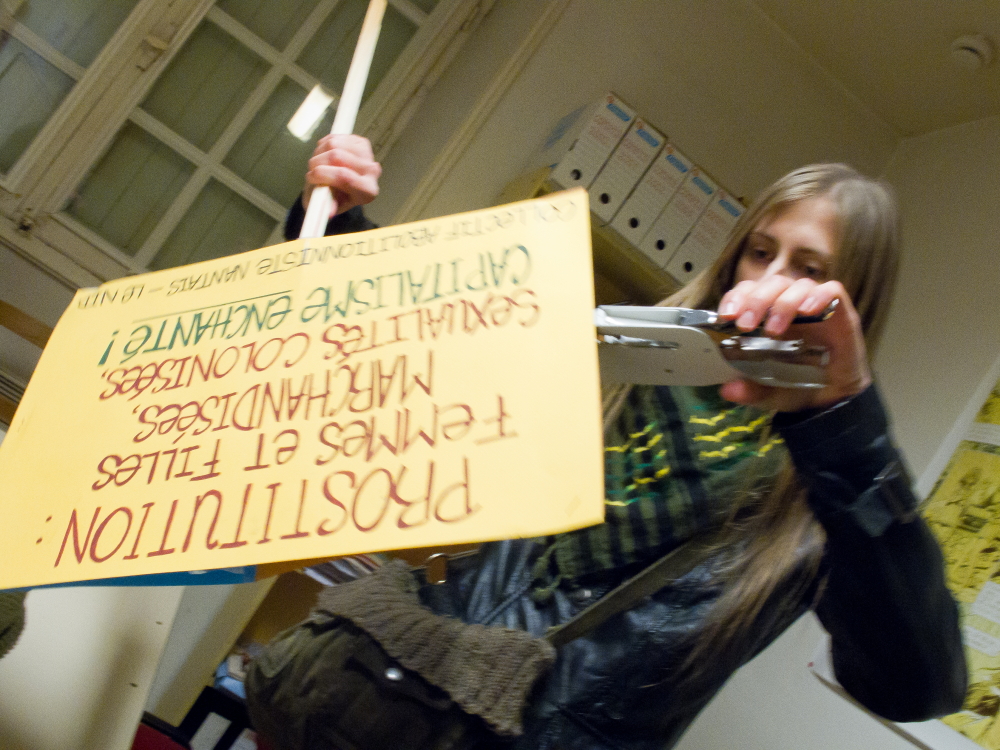 PROSTITUTION :
FEMMES ET FILLES
MARCHANDISÉES,
SEXUALITÉS COLONISÉES,
CAPITALISME ENCHANTÉ !
COLLECTIF ABOLITIONNISTE NANTAIS – LE NID